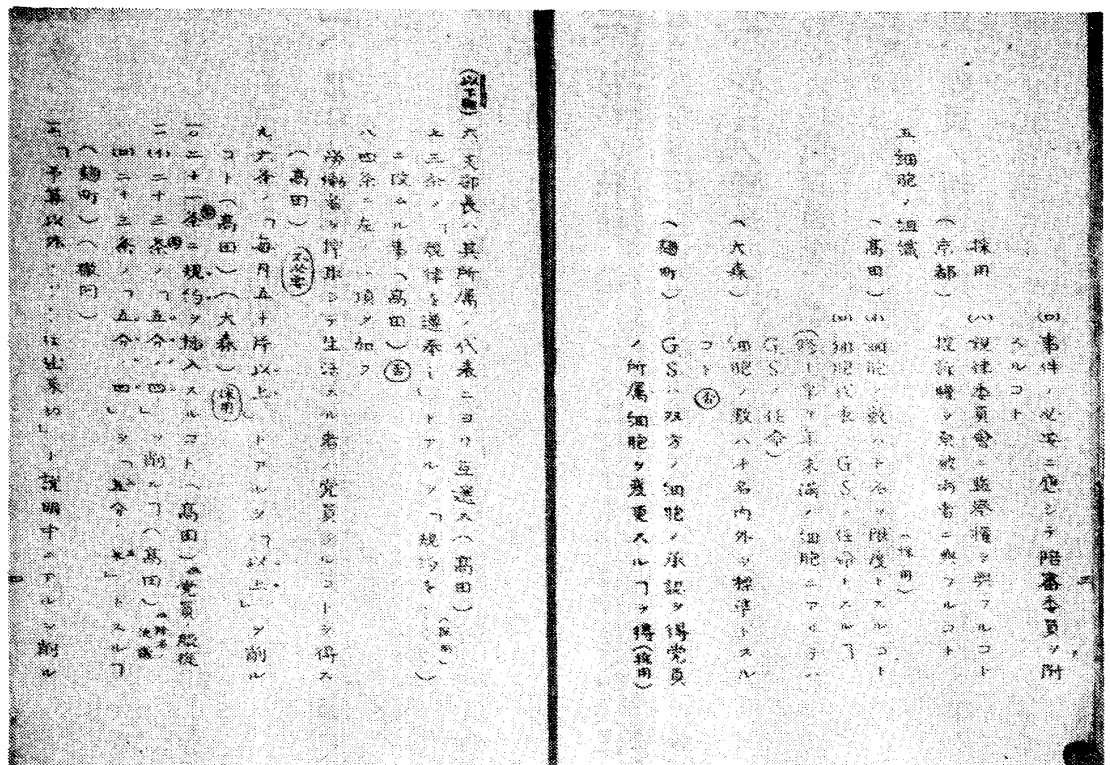 (ロ)事件ノ必要ニ応ジテ陪審委員ヲ附
スルコト
採用 (ハ)規律委員會ニ監察権ヲ與フルコト
(京都) 控訴権ヲ原被両者ニ與フルコト
(採用)
五細胞ノ組織
(高田) (イ)細胞ノ数ハ十名ヲ限度トスルコト
(ロ)細胞代表 GSノ任命トスルヿ
未満ノ細胞ニアリテハ
GSノ任命)
(大森) 細胞ノ数ハ十名内外ヲ標準トスル
コト(否)
(麹町) GSハ双方ノ細胞ノ承諾ヲ得党員
ノ所属細胞ヲ変更スルヿヲ得(採用)
三
(以下略)
六支部長ハ其所属ノ代表ニヨリ互選ス(高田)
七三条ノ「規律を遵奉し」トアルヲ「規約を…」
(採用)
ニ改ムル事(高田)(否)
八四条ニ左ノ一項ヲ加フ
労働者ヲ搾取シテ生活スル者ハ党員タルコトヲ得ズ
(高田)(不必要)
九六条ノ「毎月五十斤以上」トアルヲ「以上」ヲ削ル
コト(高田)(大森)(採用)
一〇二十一条ニ規約ヲ挿入スルコト(高田)党員服従
二(イ)二十三条ノ「五分ノ四」ヲ削ルヿ(高田)
(ロ)二十三条ノ「五分ノ四」ヲ トスルヿ
(麹町)(撤囘)
「予算以外……仕出来ぬ」ト説明中ニアルヲ削ル
四